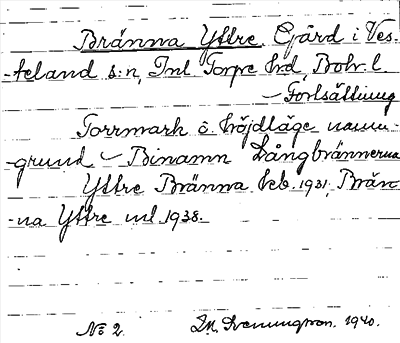 Bränna Yttre. Gård i Ves-
-teland s:n, Inl Torpe hrd, Boh. l.
- Fortsättning
Torrmark o. höjdläge namn-
-grund - Binamn Långbrännorna
Yttre Bränna Keb. 1931, Brän-
-na Yttre ml 1938.
No 2. 1940.